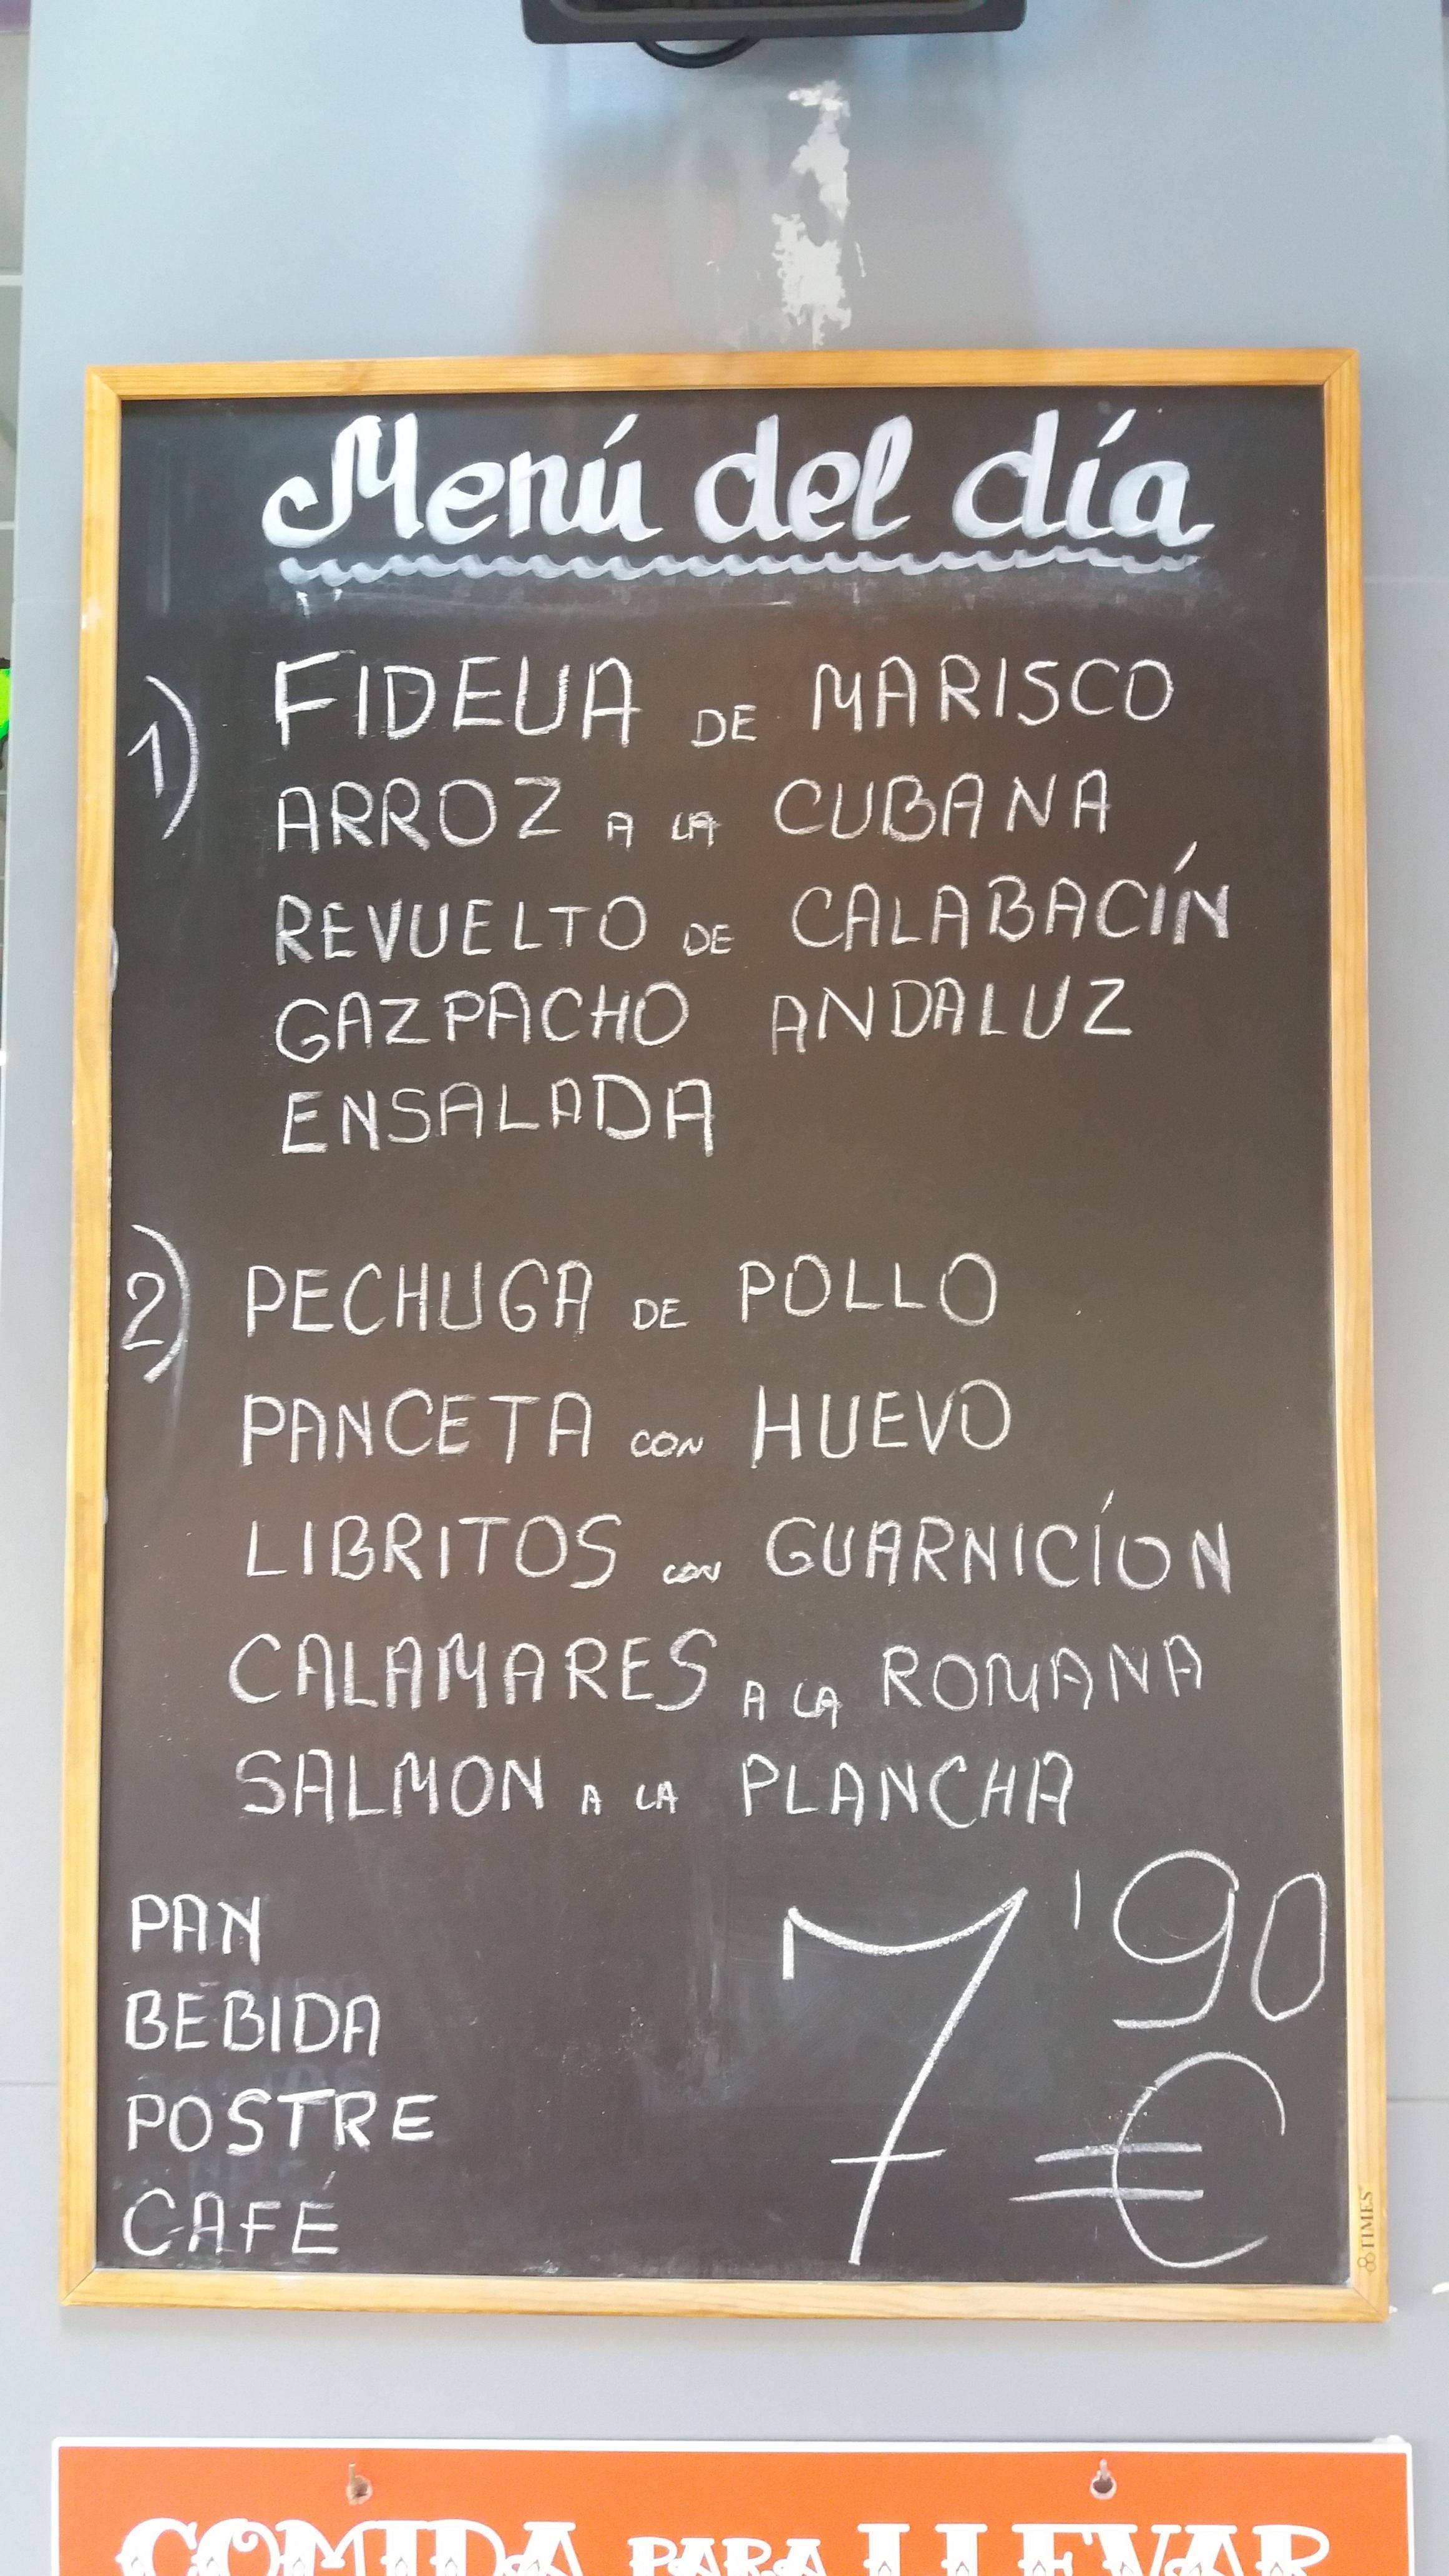 Menú del día
1) FIDEUA DE MARISCO
ARROZ A LA CUBANA
REVUELTO DE CALABACÍN
GAZPACHO ANDALUZ
ENSALADA
2) PECHUGA DE POLLO
PANCETA CON HUEVO
LIBRITOS CON GUARNICÍON
CALAMARES A LA ROMANA
SALMON A LA PLANCHA
PAN
BEBIDA
POSTRE
CAFÉ
7'90
€
TIMES
COMIDA PARA LLEVAR